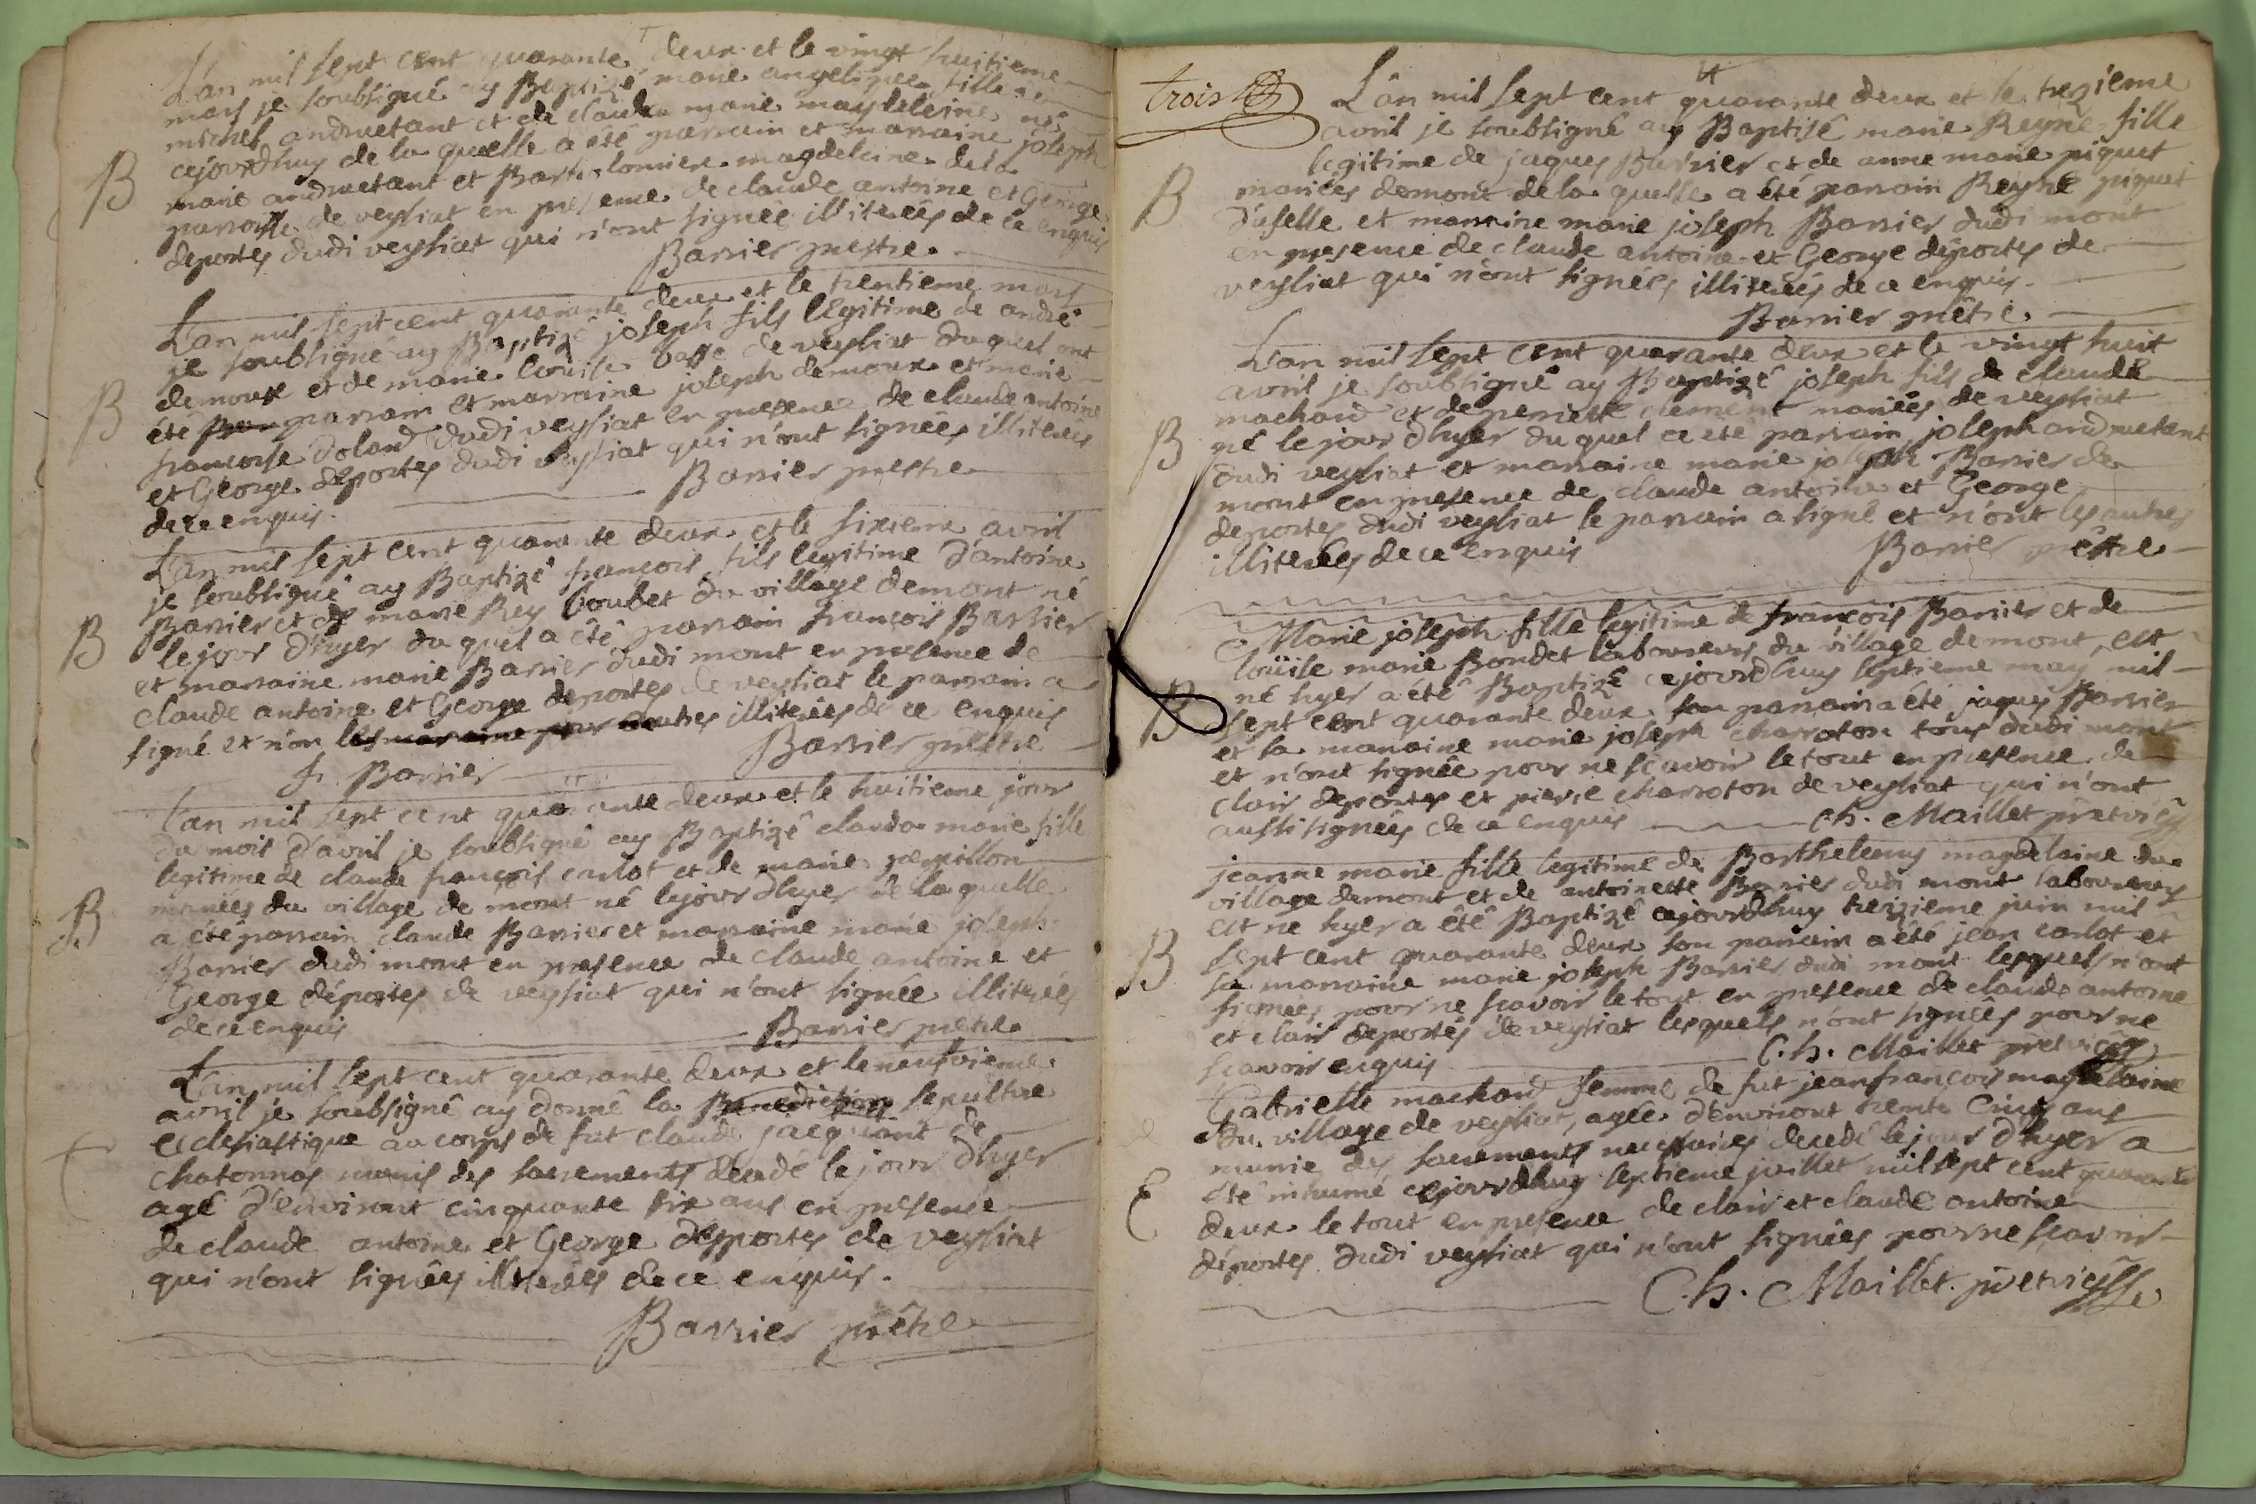 L'an mil sept cent quarante deux et le vingt huitieme
mars je soubsigné ay Baptizé marie angelique fille de
michel andruetant et de clauda marie magdeleine né
cejourdhuy de la quelle a été parrain et marraine joseph
B
marie andruetant et Barthelomiere magdeleine de la
paroisse de veysiat en presence de claude antoine et George
deportes dudi veysiat qui n'ont signées illiterées de ce enquis
Barrier prestre
L'an mil sept cent quarante deux et le trentieme mars
je soubsigné ay Baptizé joseph fils legitime de andré
demoux et de marie louise de veysiat du quel ont
B
été parrain et marraine joseph demoux et marie
francoise Doland dudi veysiat en presence de claude antoine
et George deportes dudi veysiat qui n'ont signées illiterées
de ce enquis.
Barrier prestre
L'an mil sept cent quarante deux et le sixieme avril
je soubsigné ay Baptizé françois fils legitime d'antoine
Barrier et de marie Rey boubet du village demont né
B
le jour d'hyer du quel a été parrain françois Barrier
et marraine marie Barrier dudi mont en presence de
claude antoine et George deportes de veysiat le parrain a
signé et non les marraine autres illiterées de ce enquis
f. Barrier
Barrier prestre
L'an mil sept cent quarante deux et le huitieme jour
du mois d'avril je soubsigné ay Baptizé clauda marie fille
legitime de claude françois carlot et de marie papillon
mariées du village de mont né lejour d'hyer de laquelle
B
a été parrain claude Barrier et marraine marie joseph
Barrier dudi mont en presence de claude antoine et
George déportes de veysiat qui n'ont signée illiterées
de ce enquis
Barrier prêtre
L'an mil sept cent quarante deux et le neufvieme
avril je soubsigné ay donné la Benediction sepulture
ecclesiastique au corps de fut claude jacquant de
chatonnas munis des sacrements decedé le jour d'hyer
agé d'environt cinquante six ans en presence
de claude antoine et George desportes de veysiat
qui n'ont signées illiterées de ce enquis.
Barrier prêtre
trois
L'an mil sept cent quarante deux et le trezieme
avril je soubsigné ay Baptisé marie Reyne fille
legitime de jaques Barrier et de anne marie piquet
B
mariées demont de la quelle a été parrain Reyné piquet
d'aselle et marraine marie joseph Barrier dudi mont
en presence de claude antoine et George déportes de
veysiat qui n'ont signées illiterées de ce enquis.
Barrier prêtre
L'an mil sept cent quarante deux et le vingt huit
avril je soubsigné ay Baptizé joseph fils de claude
machard et de pernette clement mariées de veysiat
B
né lejour d'hyer du quel a été parrain joseph andruetant
dudi veysiat et marraine marie joseph Barrier de
mont en presence de claude antoine et George
deportes dudi veysiat le parrain a signé et n'ont les autres
illiterées de ce enquis
Barrier prêtre
Marie joseph fille legitime de françois Barrier et de
loüise marie Bondet laboureurs du village demont, est
né hyer a été Baptizé cejourdhuy septieme may mil
B
sept cent quarante deux son parrain a été jaques Barrier
et sa marraine marie joseph charroton tous dudi mont
et n'ont signée pour ne scavoir le tout en presence de
clair deportes et pierre charroton de veysiat qui n'ont
aussi signées de ce enquis
Ch. Maillet pretvic
jeanne marie fille legitime de Barthelemy magdelaine du
village demont et de antoinette Barrier dudi mont laboureurs
est né hyer a été Baptizé cejourdhuy treizieme juin mil
B
sept cent quarante deux son parrain a été jean carlot et
sa marraine marie joseph Barrier dudi mont lesquels n'ont
signées pour ne scavoir le tout en presence de claude antoine
et clair deportes de veysiat lesquels n'ont signées pour ne
scavoir enquis
C.h. Maillet pretvic
Gabrielle machard femme de fut jean françois magdelaine
du village de veysiat, agée d'environt trente cinq ans
munie des sacrements necessaires decedé le jour d'hyer a
E
été inhumé cejourdhuy septieme juillet mil sept cent quarante
deux le tout en presence de clair et claude antoine
déportes dudi veysiat qui n'ont signées pour ne scavoir
C.h. Maillet. pretvic